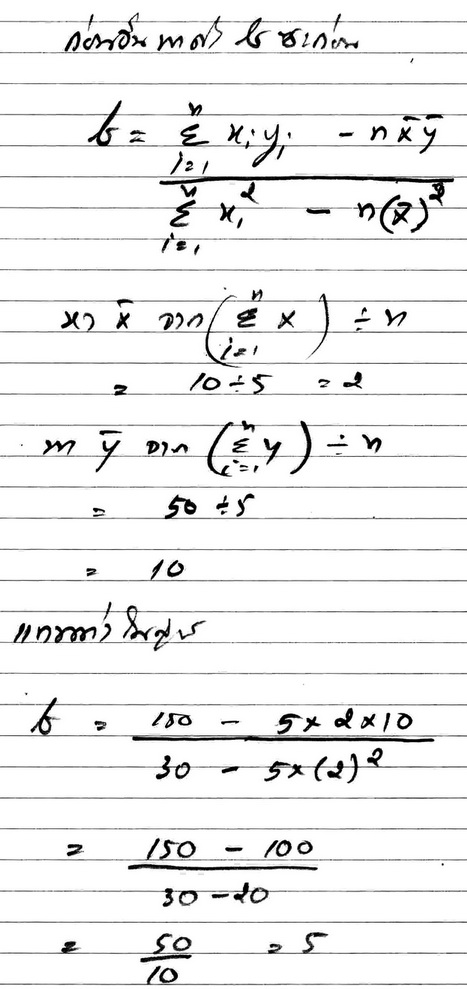 ก่อนอื่นหาค่า b ซะก่อน
b = Σ_{i=1}^{n} x_i y_i - n x̄ ȳ
Σ_{i=1}^{n} x_i^2 - n(x̄)^2
หา x̄ จาก (Σ_{i=1}^{n} x) ÷ n
= 10 ÷ 5 = 2
หา ȳ จาก (Σ_{i=1}^{n} y) ÷ n
= 50 ÷ 5
= 10
แทนค่าในสูตร
b = 150 - 5 × 2 × 10
30 - 5 × (2)^2
= 150 - 100
30 - 20
= 50 = 5
10